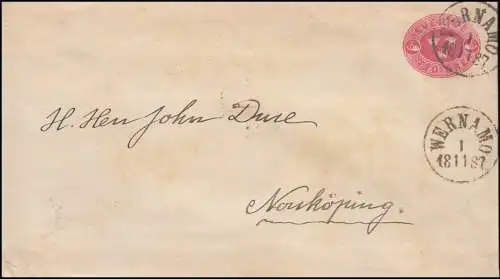 SVERIGE
WERNAMO
H. Herr John Duse
WERNAMO
1
18 11 87
Norrköping.